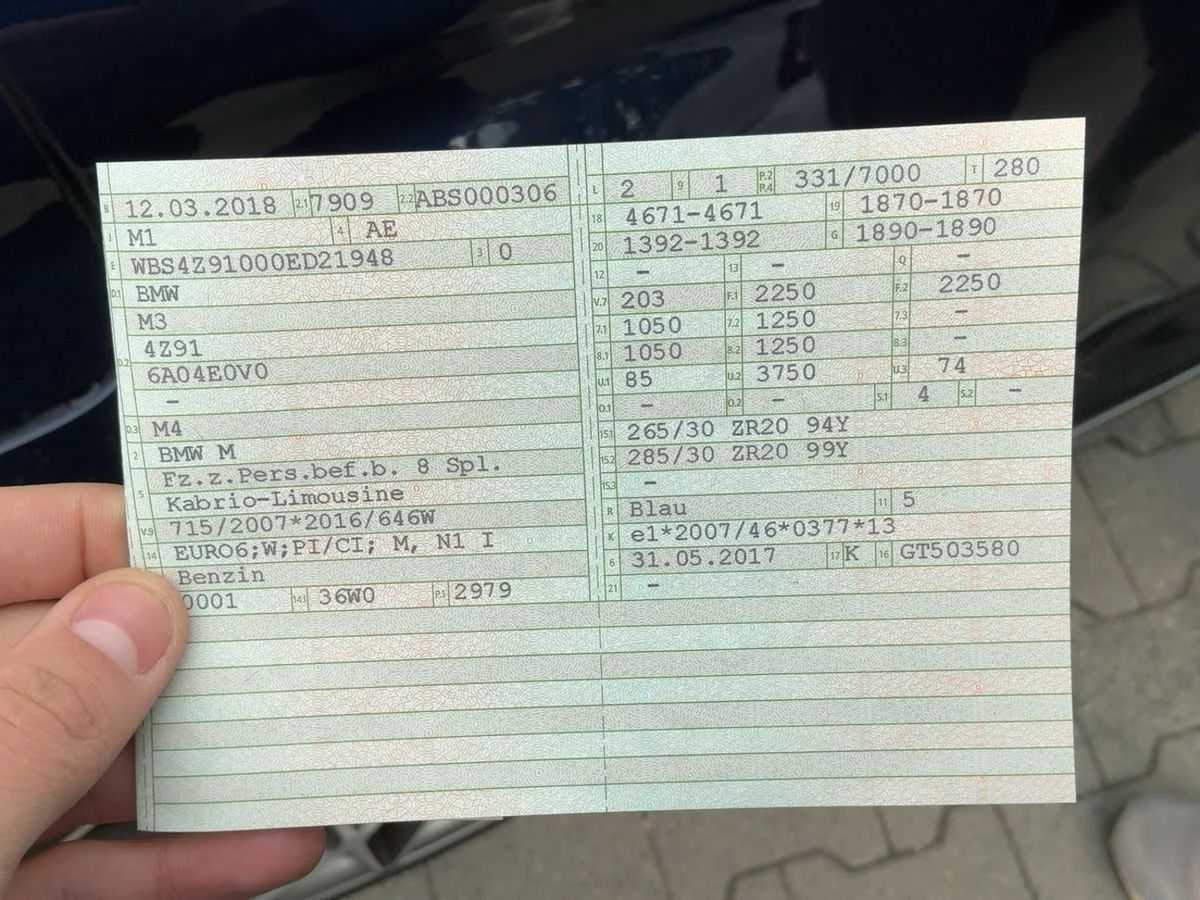 B 12.03.2018 2.1 7909 2.2 ABS000306
J M1 4 AE
E WBS4Z91000ED21948 3 0
D.1 BMW
M3
D.2 4Z91
6A04E0V0
–
D.3 M4
2 BMW M
Fz.z.Pers.bef.b. 8 Spl.
5 Kabrio-Limousine
V.9 715/2007*2016/646W
14 EURO6;W;PI/CI; M, N1 I
Benzin
0001 14.1 36W0 P.1 2979
L 2 9 1 P.2 P.4 331/7000 T 280
18 4671-4671 19 1870-1870
20 1392-1392 G 1890-1890
12 – 13 – Q –
V.7 203 F.1 2250 F.2 2250
7.1 1050 7.2 1250 7.3 –
8.1 1050 8.2 1250 8.3 –
U.1 85 U.2 3750 U.3 74
O.1 – O.2 – S.1 4 S.2 –
15.1 265/30 ZR20 94Y
15.2 285/30 ZR20 99Y
15.3 –
R Blau 11 5
K e1*2007/46*0377*13
6 31.05.2017 17 K 16 GT503580
21 –